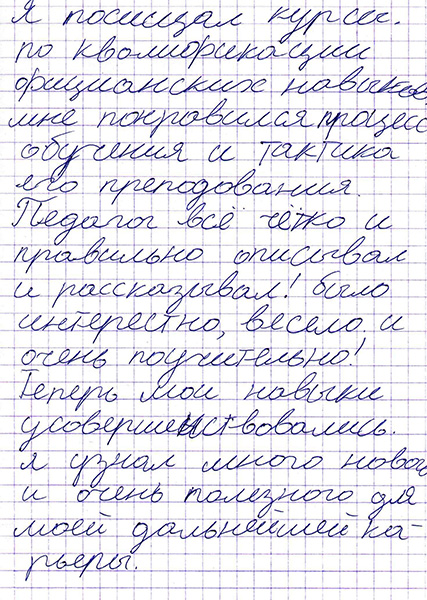 Я посещал курсы.
по квалификации
официанских навыков,
мне понравился процесс
обучения и тактика
его преподования.
Педагог всё чётко и
правильно описывал
и рассказывал! было
интерестно, весело и
очень поучительно!
Теперь мои навыки
усовершенствовались.
я узнал много нового
и очень полезного для
моей дальнейшей ка-
рьеры.